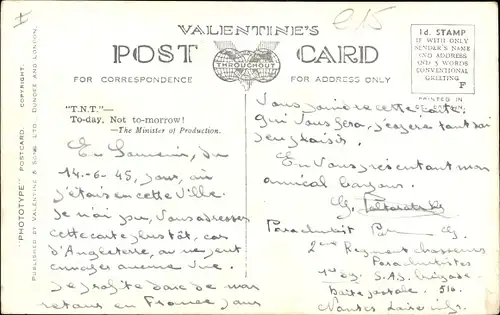 I
e15
VALENTINE'S
POST CARD
THROUGHOUT
FOR CORRESPONDENCE
FOR ADDRESS ONLY
1d. STAMP
IF WITH ONLY
SENDER'S NAME
AND ADDRESS
AND 5 WORDS
CONVENTIONAL
GREETING
F
PRINTED IN
"PHOTOTYPE" POSTCARD. COPYRIGHT.
PUBLISHED BY VALENTINE & SONS, LTD., DUNDEE AND LONDON.
"T.N.T."—
To-day, Not to-morrow!
—The Minister of Production.
En Souvenir, du
14-6-45, jour, où
j'étais en cette Ville.
Je n'ai pu, Vous adresser
cette carte plustôt, car
d'Angleterre, on ne peut
envoyer aucune Vue.
Je profite donc de mon
retour en France pour
Vous joindre cette carte
qui Vous fera, j'espère tout
plaisir.
En Vous présentant mon
amical bonjour.
G.
Parachutist
2ème Régiment chasseurs
Parachutistes
S.A.S. brigade
boite postale. 516.
Nantes Loire infr.